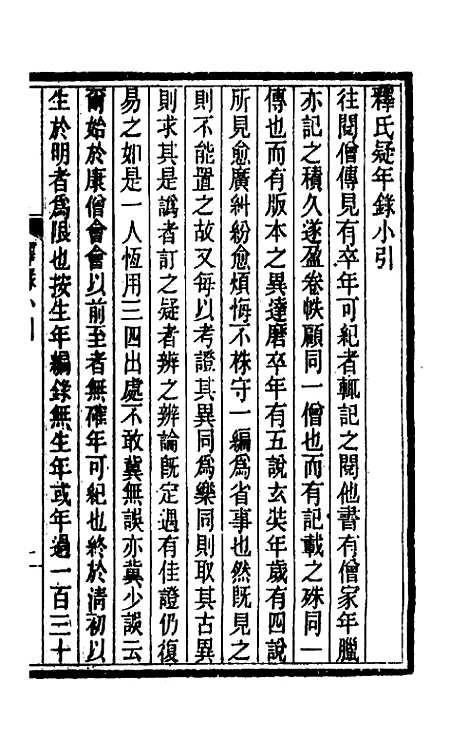 釋氏疑年錄小引
往閱僧傳見有卒年可紀者輒記之閱他書有僧家年臘
亦記之積久遂盈卷帙顧同一僧也而有記載之殊同一
傳也而有版本之異達磨卒年有五說玄奘年歲有四說
所見愈廣糾紛愈煩悔不株守一編為省事也然既見之
則不能置之故又每以考證其異同為樂同則取其古異
則求其是譌者訂之疑者辨之辨論既定遇有佳證仍復
易之如是一人恆用三四出處不敢冀無誤亦冀少誤云
爾始於康僧會會以前至者無確年可紀也終於清初以
生於明者為限也按生年編錄無生年或年過一百三十
釋錄小引
一